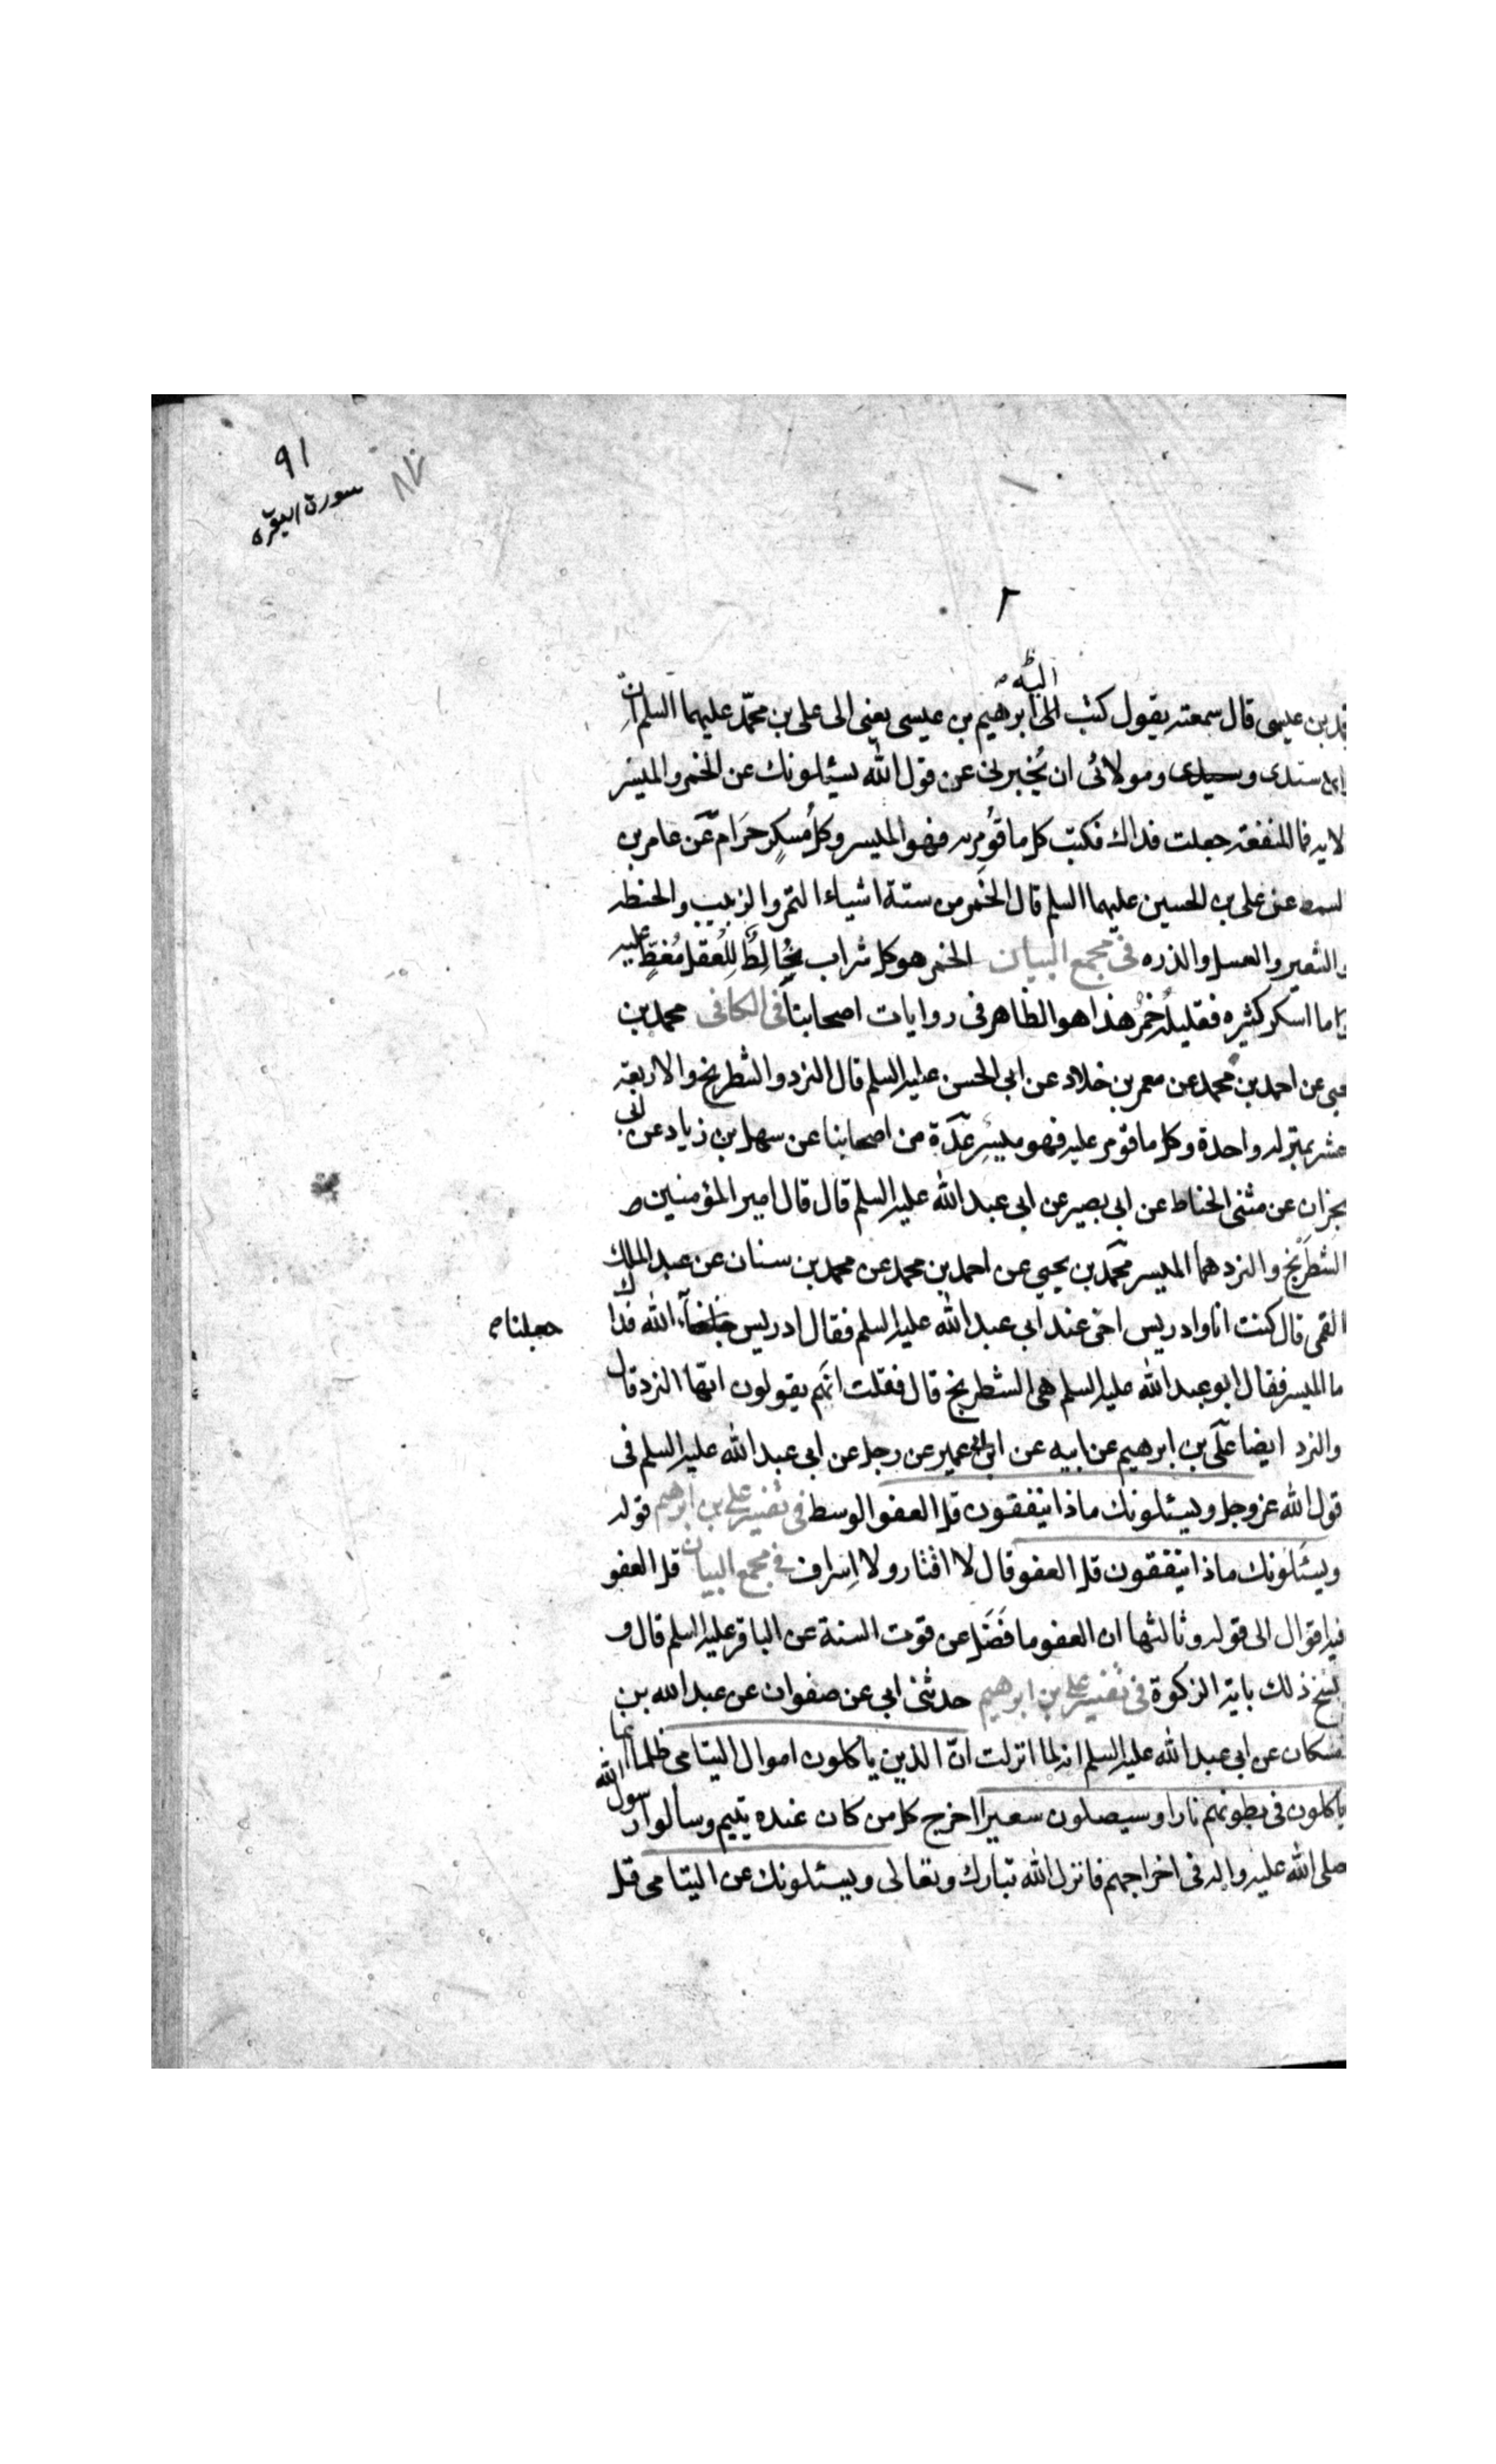 ٩١
سورة البقره
٨٧
٢
اليه
بن عيسى قال سمعته يقول كتب الى ابرهيم بن عيسى يعنى الى على بن محمّد عليهما السلم ان
سندى وسيدى ومولائى ان تُخبرنى عن قول الله يسئلونك عن الخمر والميسر
لايه فما المنفعة جعلت فداك فكتب كل ما قُومِر به فهو الميسر وكلُ مُسكِرٍ حَرَام عَّن عامر بن
السمط عن على بن الحسين عليهما السلم قال الخمر من ستة اشياء التمر والزبيب والحنطه
والشعير والعسل والذره فى مجمع البيان الخمر هو كل شراب مُخَالِطٌ لِلْعقل مُغَطٍّ عليه
ما اسكر كثيره فقليلُهُ خَمْرٌ هذا هو الظاهر فى روايات اصحابنا فى الكافى محمد بن
يحيى عن احمد بن محمد عن معمر بن خلاد عن ابى الحسن عليه السلم قال النرد والشطرنج والاربعة
عشر بمنزلة واحدة وكل ما قومر عليه فهو ميسِر عدّة من اصحابنا عن سهل بن زياد عن ابى
نجران عن مثنى الحناط عن ابى بصير عن ابى عبد الله عليه السلم قال قال امير المؤمنين ص
الشطرَنْج والنرد هما الميسر محمّد بن يحيى عن احمد بن محمد عن محمد بن سنان عن عبد الملك
القمى قال كنت انا وادريس اخى عند ابى عبد الله عليه السلم فقال ادريس الله فداك
جعلنا
ما الميسر فقال ابو عبد الله عليه السلم هى الشطرنج قال فقلت انهم يقولون انها النرد قال
والنرد ايضا علّى بن ابرهيم عن ابيه عن ابن ابى عمير عن رجل عن ابى عبد الله عليه السلم فى
قول الله عز وجل ويسئلونك ماذا ينفقون قل العفو الوسط فى تفسير على بن ابرهيم قوله
ويسئلونك ماذا ينفقون قل العفو قال لا اقتار ولا اِسراف فى مجمع البيان قل العفو
فيه اقوال الى قوله وثالثها ان العفو ما فَضَل عن قوت السنة عن الباقر عليه السلم قال و
نسخ ذلك باية الزكوة فى تفسير على بن ابرهيم حدثنى ابى عن صفوان عن عبد الله بن
مسكان عن ابى عبد الله عليه السلم انه لما انزلت انّ الذين ياكلون اموال اليتامى ظلما انما
ياكلون فى بطونهم نارا وسيصلون سعيرا اخرج كل من كان عنده يتيم وسألوا رسول الله
صلى الله عليه واله فى اخراجهم فانزل الله تبارك وتعالى ويسئلونك عن اليتامى قل